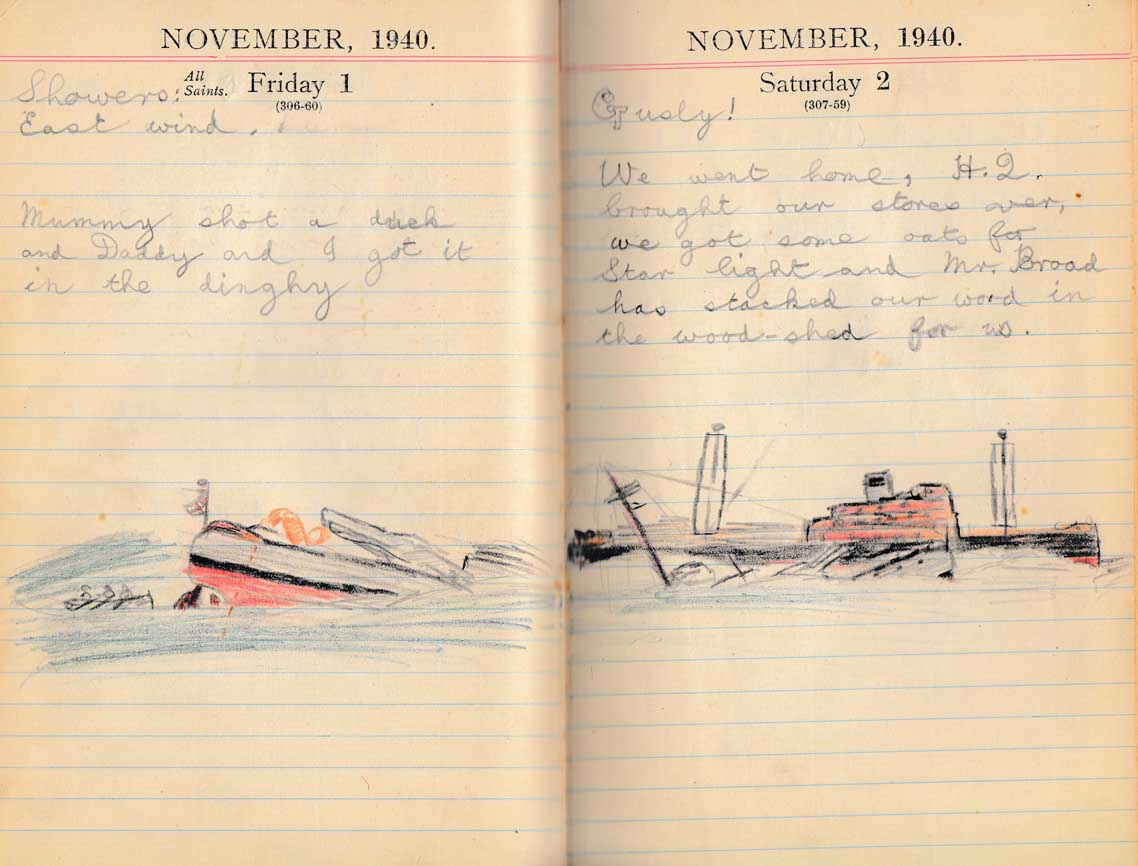 NOVEMBER, 1940.
All Saints. Friday 1
(306-60)
Showers:
East wind.
Mummy shot a duck
and Daddy and I got it
in the dinghy
NOVEMBER, 1940.
Saturday 2
(307-59)
Gusly!
We went home, H.Q.
brought our stores over,
we got some oats for
Star light and Mr. Broad
has stacked our wood in
the wood-shed for us.